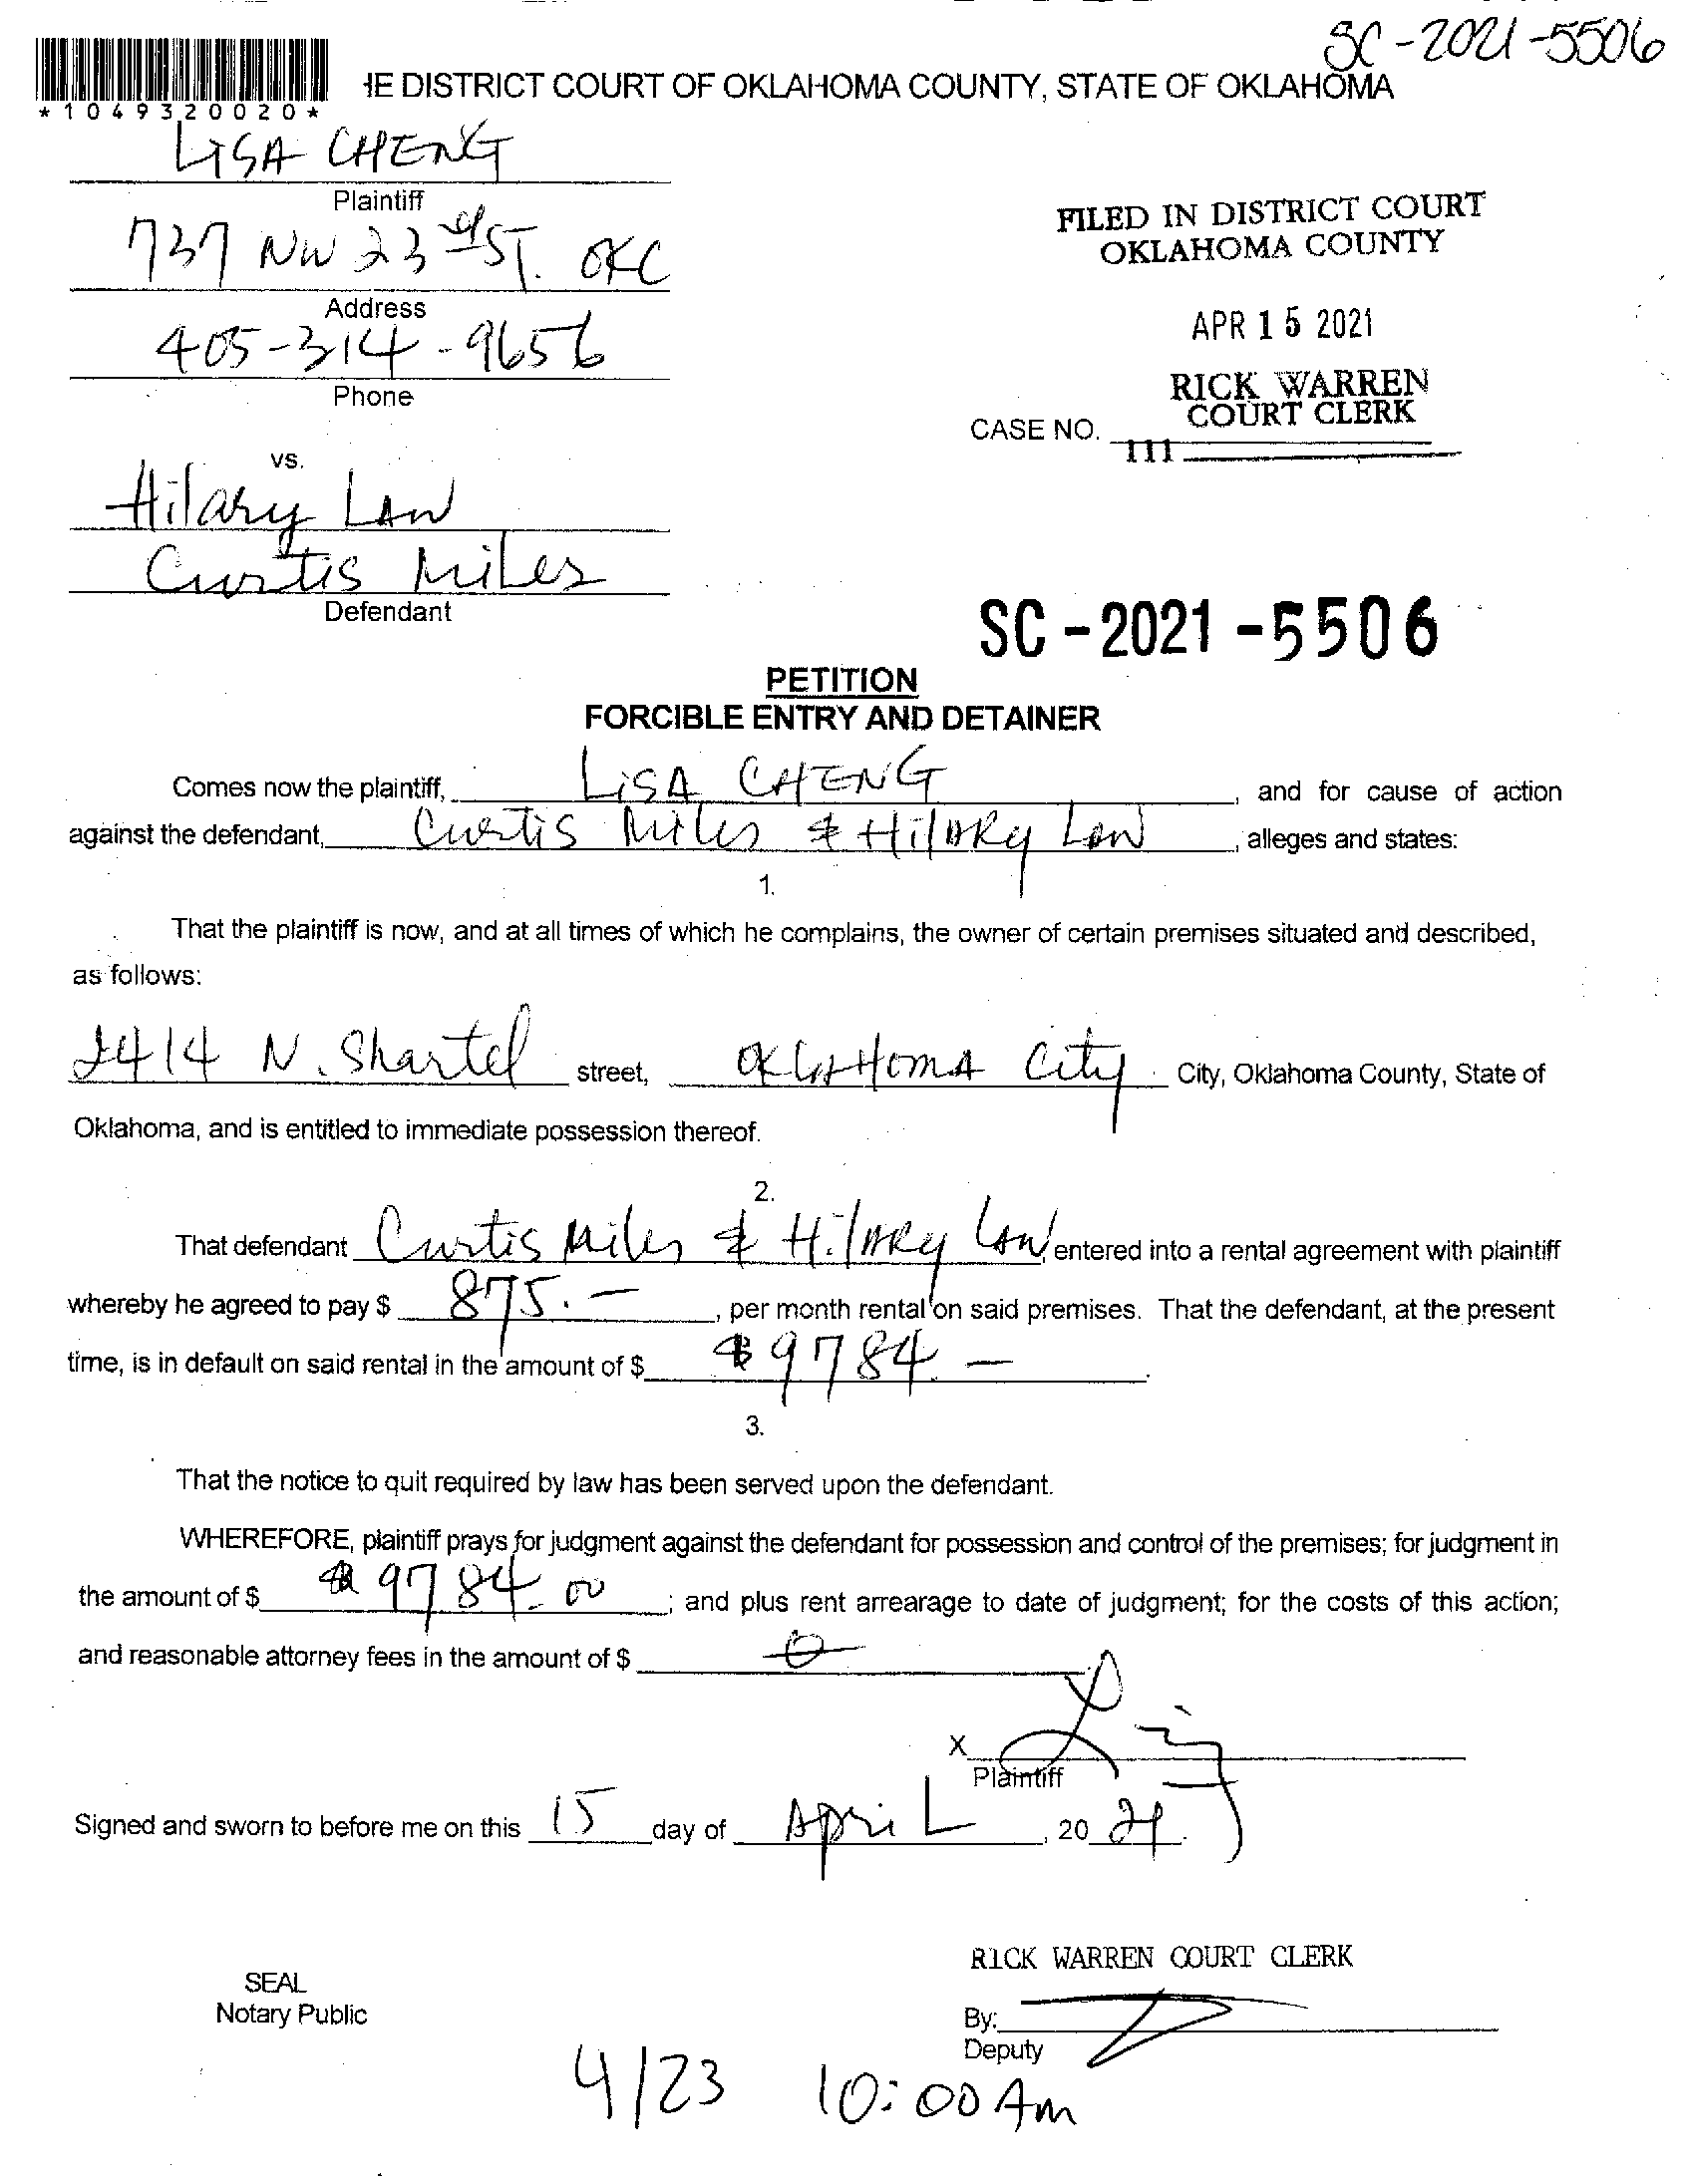 SC-2021-5506
IE DISTRICT COURT OF OKLAHOMA COUNTY, STATE OF OKLAHOMA
*1049320020*
LISA CHENG
Plaintiff
737 NW 23rd ST. OKC
Address
405-314-9656
Phone
FILED IN DISTRICT COURT
OKLAHOMA COUNTY
APR 15 2021
RICK WARREN
COURT CLERK
CASE NO.
111
vs.
Hilary Law
Curtis Miles
Defendant
SC-2021-5506
PETITION
FORCIBLE ENTRY AND DETAINER
Comes now the plaintiff, LiSA CHENG, and for cause of action
against the defendant, Curtis Miles & Hilary Law, alleges and states:
1.
That the plaintiff is now, and at all times of which he complains, the owner of certain premises situated and described,
as follows:
2414 N. Shartel street, Oklahoma City City, Oklahoma County, State of
Oklahoma, and is entitled to immediate possession thereof.
2.
That defendant Curtis Miles & Hilary Law, entered into a rental agreement with plaintiff
whereby he agreed to pay $ 875.-, per month rental on said premises. That the defendant, at the present
time, is in default on said rental in the amount of $ $9784.-.
3.
That the notice to quit required by law has been served upon the defendant.
WHEREFORE, plaintiff prays for judgment against the defendant for possession and control of the premises; for judgment in
the amount of $ 9784.00; and plus rent arrearage to date of judgment; for the costs of this action;
and reasonable attorney fees in the amount of $ 0
X
Plaintiff
Signed and sworn to before me on this 15 day of April, 20 21.
RICK WARREN COURT CLERK
SEAL
Notary Public
By:
Deputy
4/23 10:00 Am